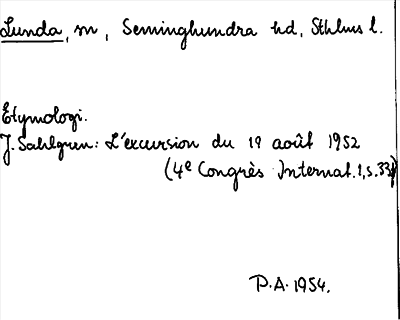 Lunda, sn, Seminghundra hd, Sthlms l.
Etymologi.
J. Sahlgren: L'excursion du 19 août 1952
(4e Congrès Internat. 1, s. 33)
P.A. 1954.